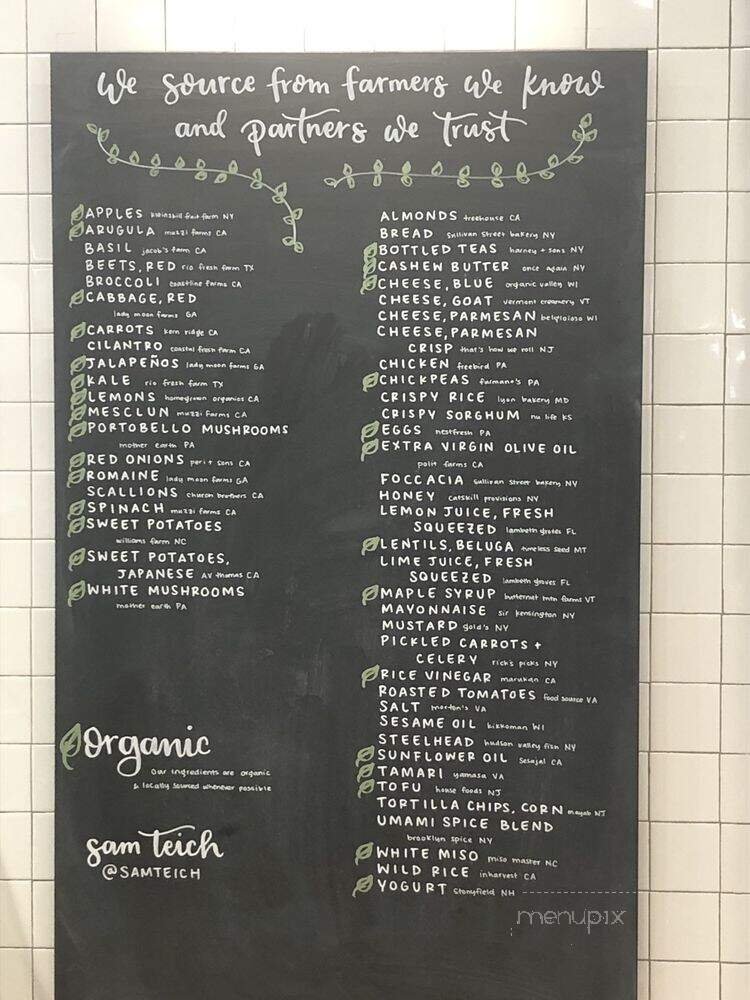 We source from farmers we know
and partners we trust
APPLES klein's kill fruit farm NY
ARUGULA muzzi farms CA
BASIL jacob's farm CA
BEETS, RED rio fresh farm TX
BROCCOLI coastline farms CA
CABBAGE, RED
lady moon farms GA
CARROTS kern ridge CA
CILANTRO coastal fresh farm CA
JALAPEÑOS lady moon farms GA
KALE rio fresh farm TX
LEMONS homegrown organics CA
MESCLUN muzzi farms CA
PORTOBELLO MUSHROOMS
mother earth PA
RED ONIONS peri + sons CA
ROMAINE lady moon farms GA
SCALLIONS church brothers CA
SPINACH muzzi farms CA
SWEET POTATOES
williams farm NC
SWEET POTATOES,
JAPANESE AV thomas CA
WHITE MUSHROOMS
mother earth PA
Organic
Our ingredients are organic
& locally sourced whenever possible
sam teich
@SAMTEICH
ALMONDS treehouse CA
BREAD sullivan street bakery NY
BOTTLED TEAS harney + sons NY
CASHEW BUTTER once again NY
CHEESE, BLUE organic valley WI
CHEESE, GOAT vermont creamery VT
CHEESE, PARMESAN belgioioso WI
CHEESE, PARMESAN
CRISP that's how we roll NJ
CHICKEN freebird PA
CHICKPEAS furmano's PA
CRISPY RICE lyon bakery MD
CRISPY SORGHUM nu life KS
EGGS nestfresh PA
EXTRA VIRGIN OLIVE OIL
polit farms CA
FOCCACIA sullivan street bakery NY
HONEY catskill provisions NY
LEMON JUICE, FRESH
SQUEEZED lambeth groves FL
LENTILS, BELUGA timeless seed MT
LIME JUICE, FRESH
SQUEEZED lambeth groves FL
MAPLE SYRUP butternut mtn farms VT
MAYONNAISE sir kensington NY
MUSTARD gold's NY
PICKLED CARROTS +
CELERY rick's picks NY
RICE VINEGAR marukan CA
ROASTED TOMATOES food source VA
SALT morton's VA
SESAME OIL kikkoman WI
STEELHEAD hudson valley fish NY
SUNFLOWER OIL sesajal CA
TAMARI yamasa VA
TOFU house foods NJ
TORTILLA CHIPS, CORN mayab NJ
UMAMI SPICE BLEND
brooklyn spice NY
WHITE MISO miso master NC
WILD RICE inharvest CA
YOGURT stonyfield NH
menupix